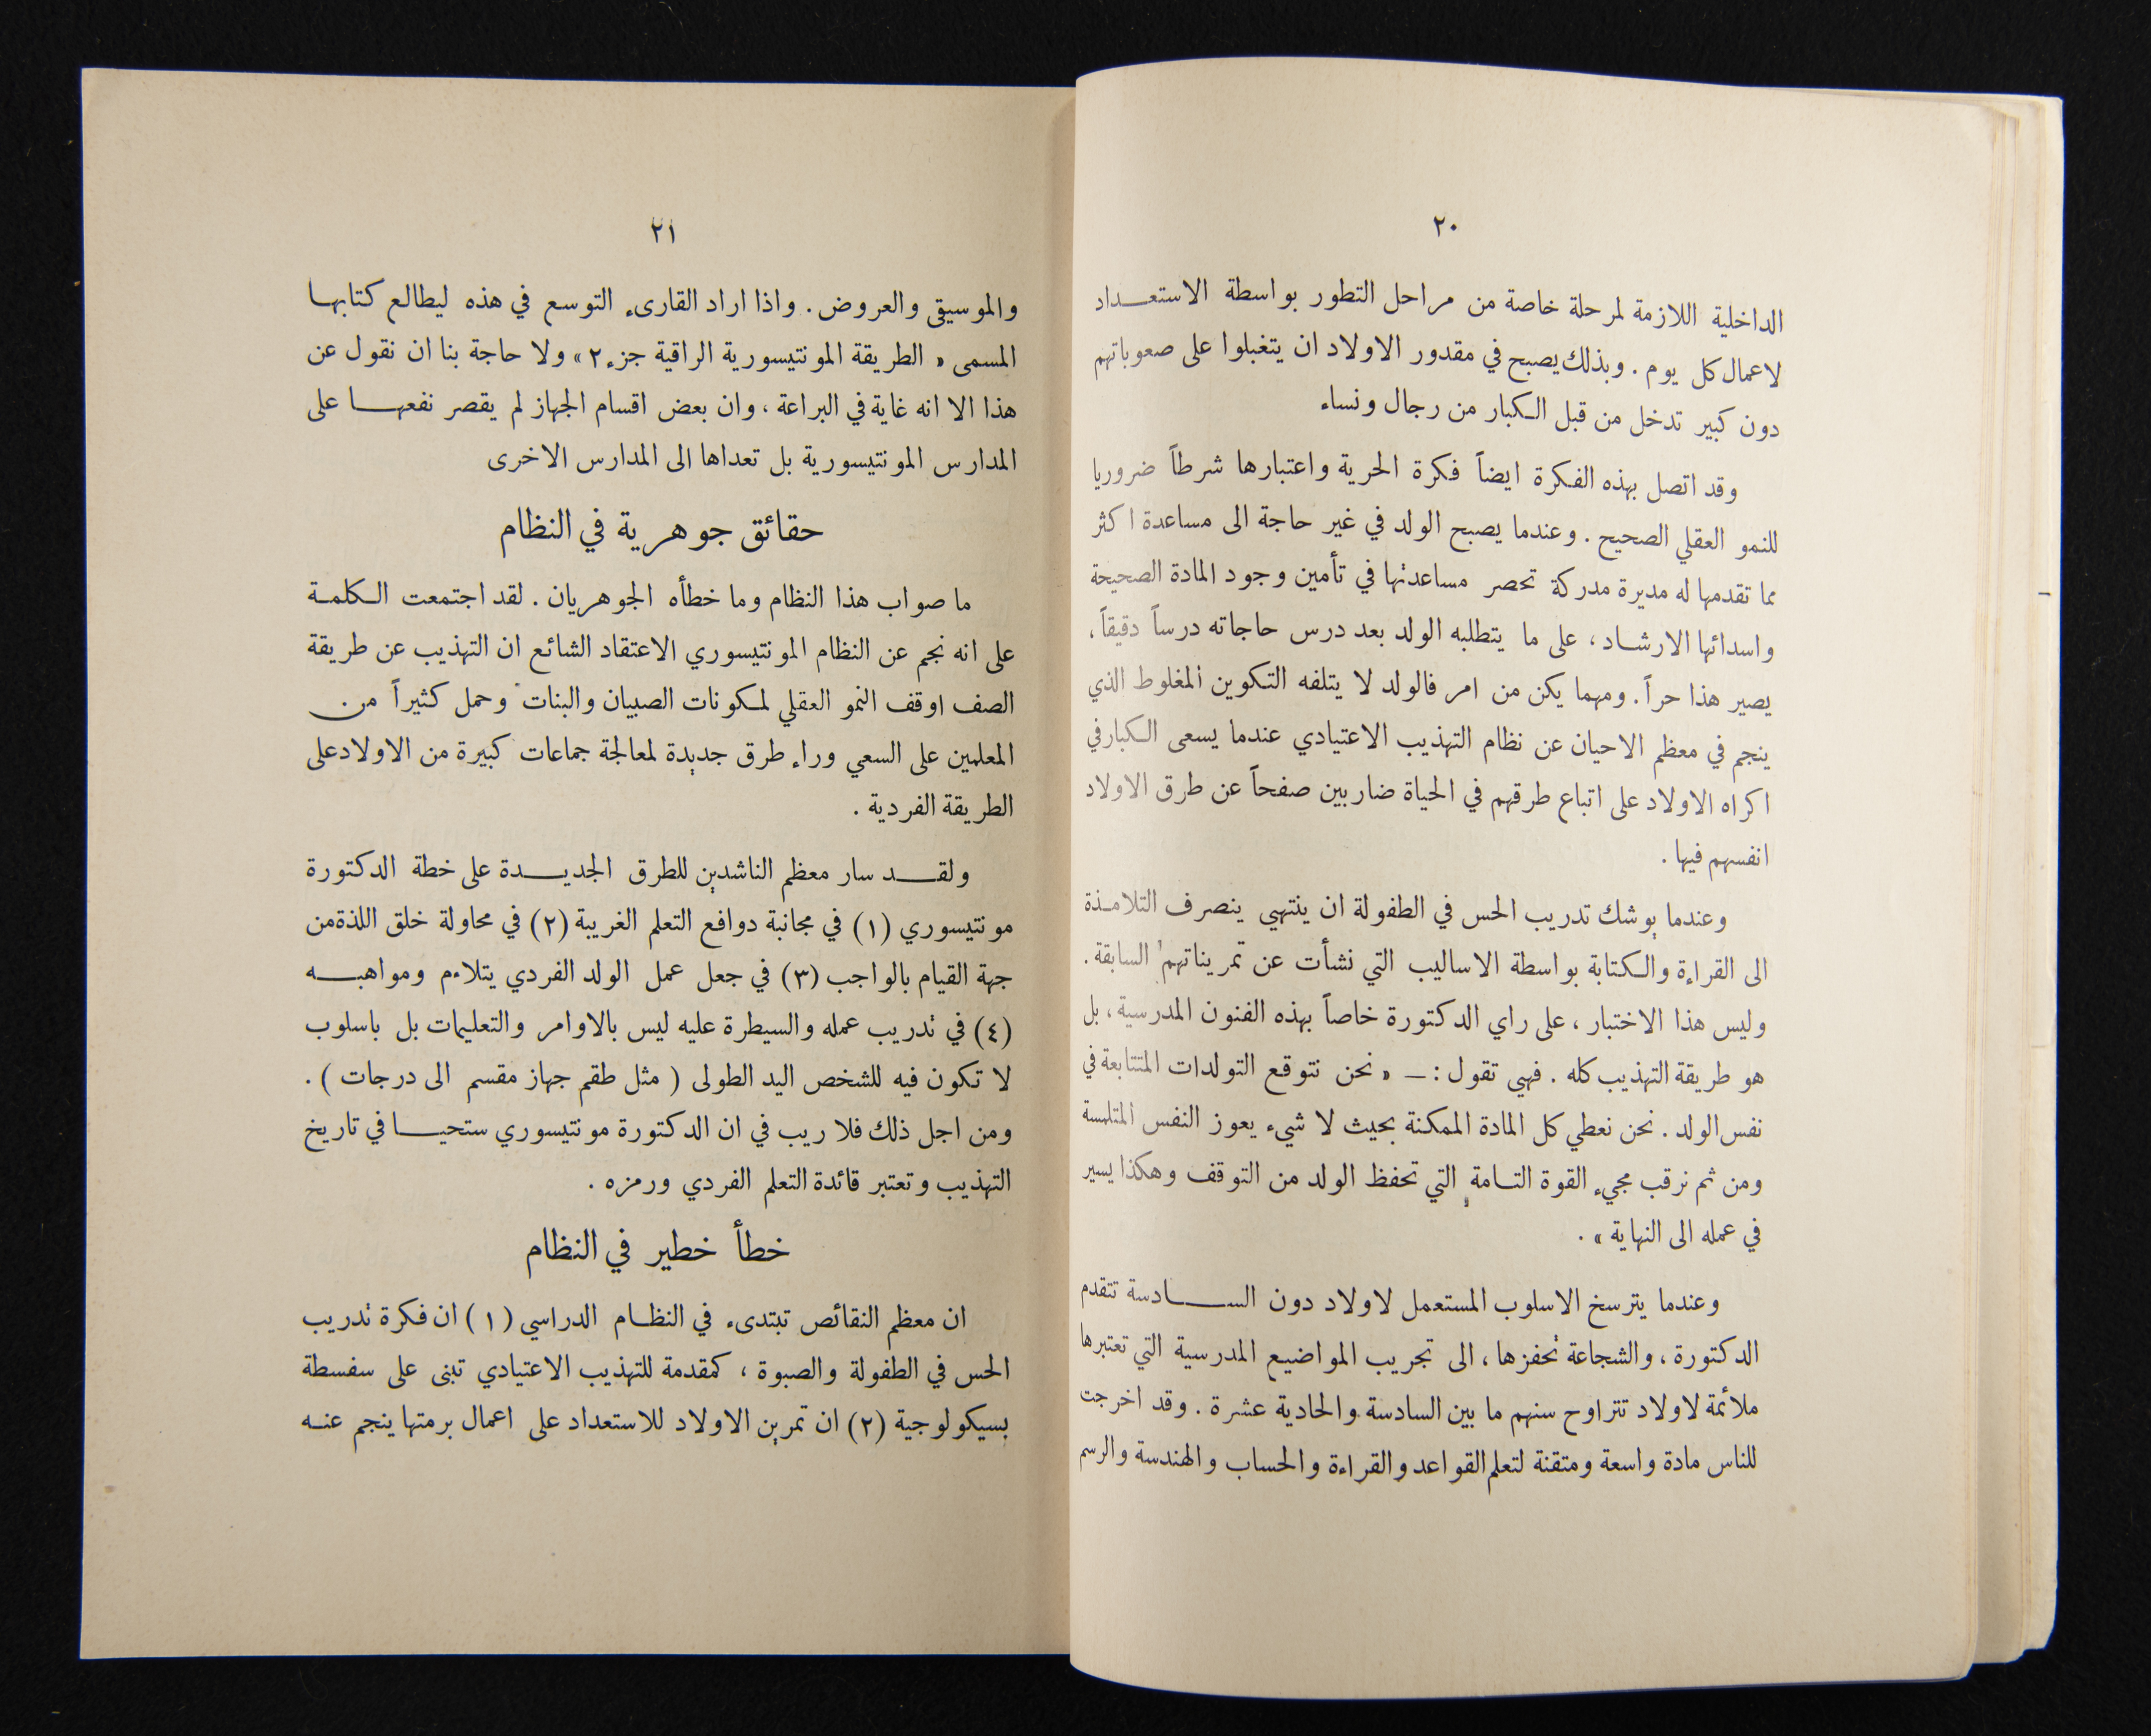 ٢٠
الداخلية اللازمة لمرحلة خاصة من مراحل التطور بواسطة الاستعـداد
لاعمال كل يوم . وبذلك يصبح في مقدور الاولاد ان يتغبلوا على صعوباتهم
دون كبير تدخل من قبل الكبار من رجال ونساء
وقد اتصل بهذه الفكرة ايضاً فكرة الحرية واعتبارها شرطاً ضروريا
للنمو العقلي الصحيح . وعندما يصبح الولد في غير حاجة الى مساعدة اكثر
مما تقدمها له مديرة مدركة تحصر مساعدتها في تأمين وجود المادة الصحيحة
واسدائها الارشاد ، على ما يتطلبه الولد بعد درس حاجاته درساً دقيقاً ،
يصير هذا حراً . ومهما يكن من امر فالولد لا يتلفه التكوين المغلوط الذي
ينجم في معظم الاحيان عن نظام التهذيب الاعتيادي عندما يسعى الكبار في
اكراه الاولاد على اتباع طرقهم في الحياة ضاربين صفحاً عن طرق الاولاد
انفسهم فيها .
وعندما يوشك تدريب الحس في الطفولة ان ينتهي ينصرف التلامذة
الى القراءة والكتابة بواسطة الاساليب التي نشأت عن تمريناتهم السابقة .
وليس هذا الاختبار ، على راي الدكتورة خاصاً بهذه الفنون المدرسية ، بل
هو طريقة التهذيب كله . فهي تقول : — « نحن نتوقع التولدات المتتابعة في
نفس الولد . نحن نعطي كل المادة الممكنة بحيث لا شيء يعوز النفس المتلمسة
ومن ثم نرقب مجيء القوة التامة التي تحفظ الولد من التوقف وهكذا يسير
في عمله الى النهاية » .
وعندما يترسخ الاسلوب المستعمل لاولاد دون السـادسة تتقدم
الدكتورة ، والشجاعة تحفزها ، الى تجريب المواضيع المدرسية التي تعتبرها
ملائمة لاولاد تتراوح سنهم ما بين السادسة والحادية عشرة . وقد اخرجت
للناس مادة واسعة ومتقنة لتعلم القواعد والقراءة والحساب والهندسة والرسم
٢١
والموسيقى والعروض . واذا اراد القارىء التوسع في هذه ليطالع كتابهـا
المسمى « الطريقة المونتيسورية الراقية جزء ٢ » ولا حاجة بنا ان نقول عن
هذا الا انه غاية في البراعة ، وان بعض اقسام الجهاز لم يقصر نفعهـا على
المدارس المونتيسورية بل تعداها الى المدارس الاخرى
حقائق جوهرية في النظام
ما صواب هذا النظام وما خطأه الجوهريان . لقد اجتمعت الكلمـة
على انه نجم عن النظام المونتيسوري الاعتقاد الشائع ان التهذيب عن طريقة
الصف اوقف النمو العقلي لمكونات الصبيان والبنات وحمل كثيراً من
المعلمين على السعي وراء طرق جديدة لمعالجة جماعات كبيرة من الاولاد على
الطريقة الفردية .
ولقـد سار معظم الناشدين للطرق الجديـدة على خطة الدكتورة
مونتيسوري (١) في مجانبة دوافع التعلم الغريبة (٢) في محاولة خلق اللذة من
جهة القيام بالواجب (٣) في جعل عمل الولد الفردي يتلاءم ومواهبـه
(٤) في تدريب عمله والسيطرة عليه ليس بالاوامر والتعليمات بل باسلوب
لا تكون فيه للشخص اليد الطولى ( مثل طقم جهاز مقسم الى درجات ) .
ومن اجل ذلك فلا ريب في ان الدكتورة مونتيسوري ستحيـا في تاريخ
التهذيب وتعتبر قائدة التعلم الفردي ورمزه .
خطأ خطير في النظام
ان معظم النقائص تبتدىء في النظـام الدراسي (١) ان فكرة تدريب
الحس في الطفولة والصبوة ، كمقدمة للتهذيب الاعتيادي تبنى على سفسطة
بسيكولوجية (٢) ان تمرين الاولاد للاستعداد على اعمال برمتها ينجم عنـه